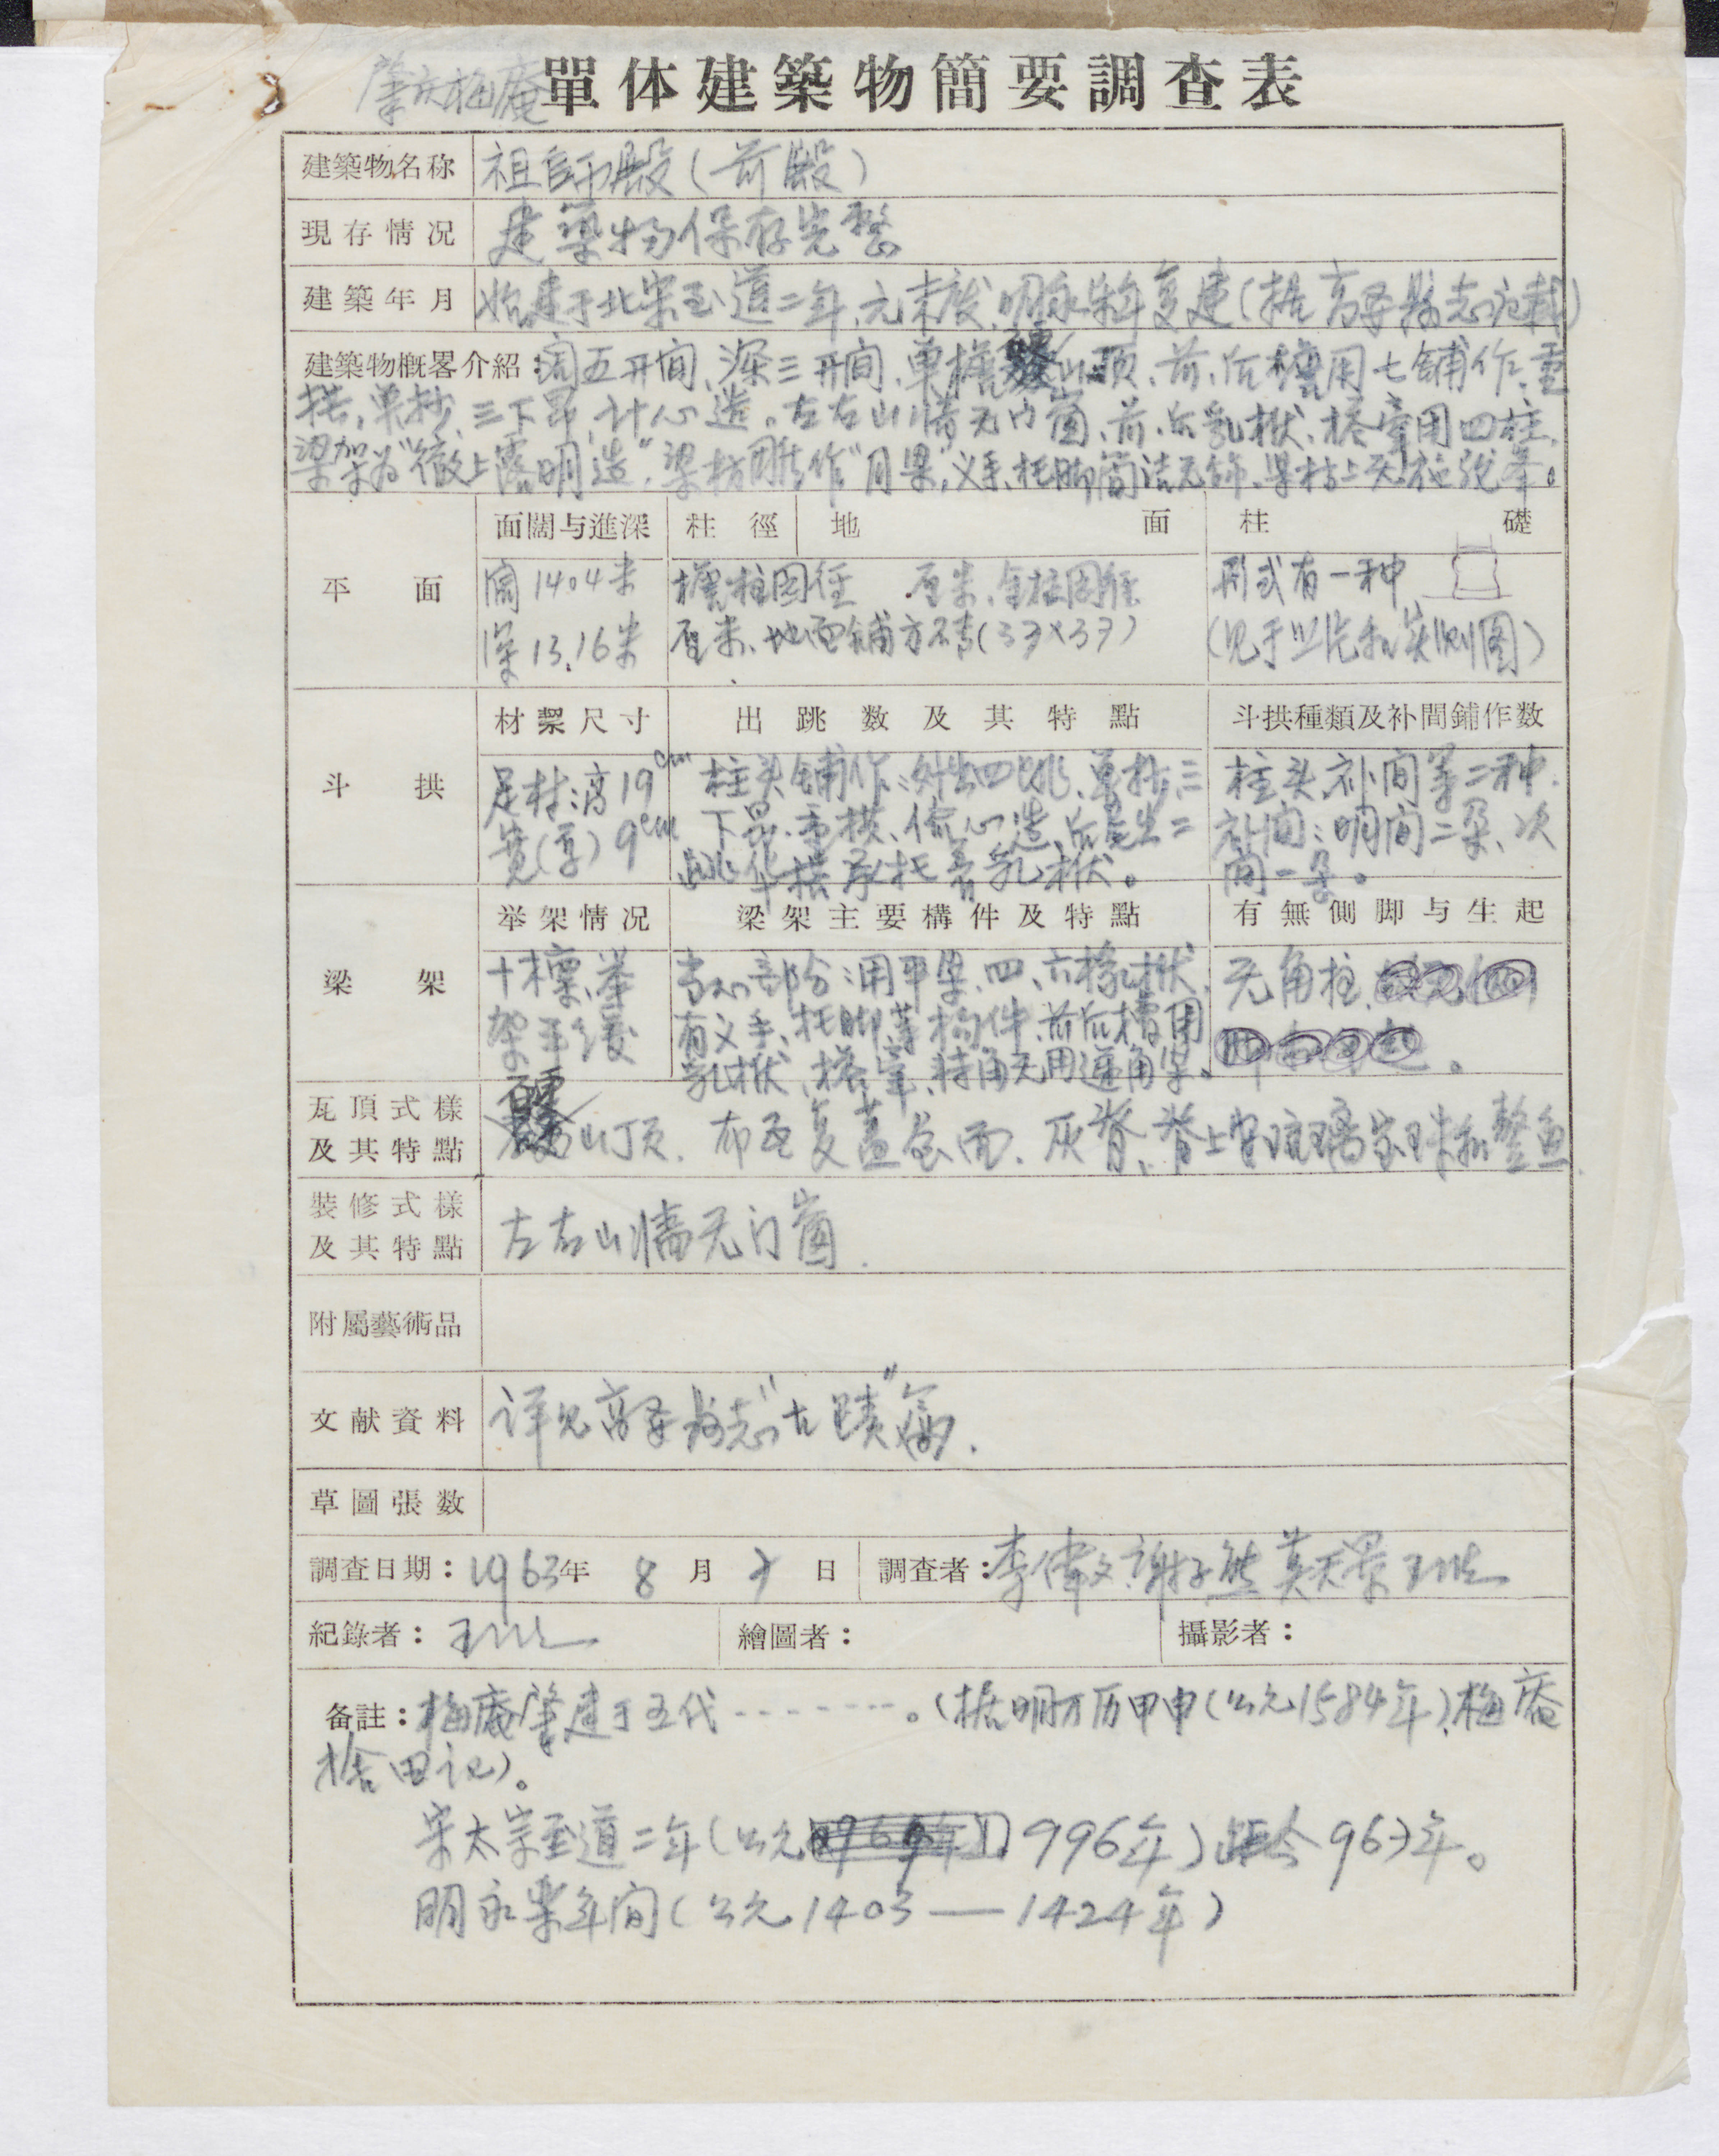 肇庆梅庵
單体建築物簡要調查表
建築物名称 祖師殿(前殿)
現存情况 建築物保存完整
建築年月 始建于北宋至道二年、元末废、明永樂年复建(据高要縣志记載)
建築物概畧介紹:阔五开间、深三开间、单檐硬山顶、前、后檐用七铺作、重
拱、单抄、三下昂、计心造。左右山墙无门窗、前、后乳栿、搭牽用四柱、
梁架为"徹上露明造",梁枋雕作"月梁",义手、托脚简洁无飾、梁枋上无施
平面
面闊与進深 柱徑 地面 柱礎
阔14.04米 檐柱园径 厘米、金柱园径 形式有一种
深13.16米 厘米、地面铺方砖(37×37) (见于照片和实测图)
斗拱
材栔尺寸 出跳数及其特點 斗拱種類及补間鋪作数
足材:高19cm 柱头铺作:外出四跳、单抄三 柱头、补间等二种.
宽(厚)9cm 下昂、重拱、偷心造、后尾出二 补间:明间二朵、次
跳华拱承托着乳栿。 间一朵。
梁架
举架情况 梁架主要構件及特點 有無側脚与生起
十檁、举 当心部分:用平梁、四、六椽栿、 无角柱、
架平缓 有义手、托脚等构件、前后槽用
乳栿、搭牽、转角无用遞角梁。
瓦頂式樣
及其特點 硬山顶、布瓦复蓋瓦面、灰脊、脊上安琉璃宝珠和鰲鱼.
裝修式樣
及其特點 左右山墙无门窗.
附屬藝術品
文献資料 详见高要县志"古蹟"篇.
草圖張数
調查日期:1963年8月 日 調查者:李偉文、謝子熊
紀錄者: 繪圖者: 攝影者:
备註:梅庵肇建于五代--------。(据明万历甲申(公元1584年)、梅菴
捨田记)。
宋太宗至道二年(公元996年)距今967年。
明永樂年间(公元1403—1424年)